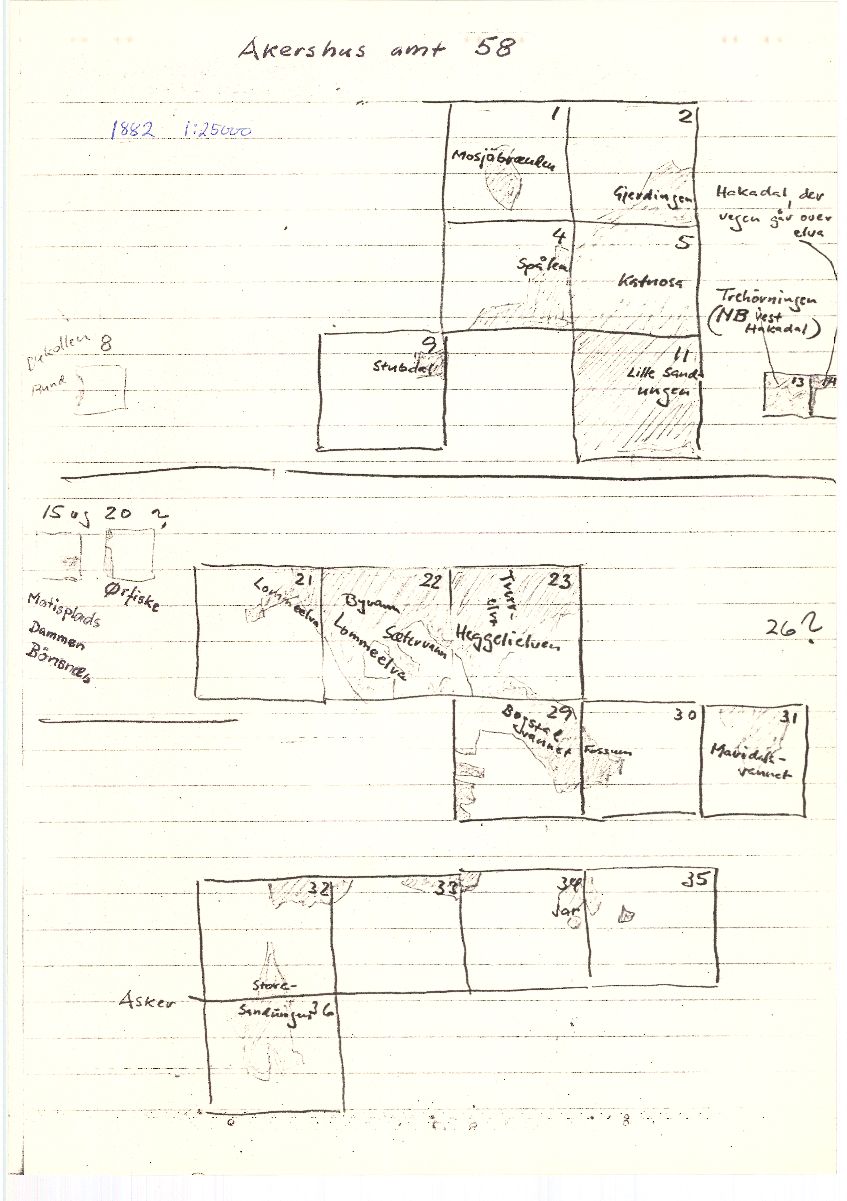 Akershus amt 58
1882 1:25000
1
2
Mosjöbrænden
Gjerdingen
Hakadal, der
vegen går over
elva
4
5
Spålen
Katnosa
Trehörningen
(NB vest
Hakadal)
8
Rund
9
Stubdal
11
Lille Sand
ungen
13
14
15 og 20 ?
Ørfiske
Matisplads
Dammen
Bönsnes
21
Lommeelva
22
Byvann
Sætervann
Lommeelva
23
Tverr-
elva
Heggelielven
26?
29
Bogstad
vannet
30
Fossum
31
Maridals-
vannet
32
33
34
Jar
35
Store-
Asker
Sandungen
36